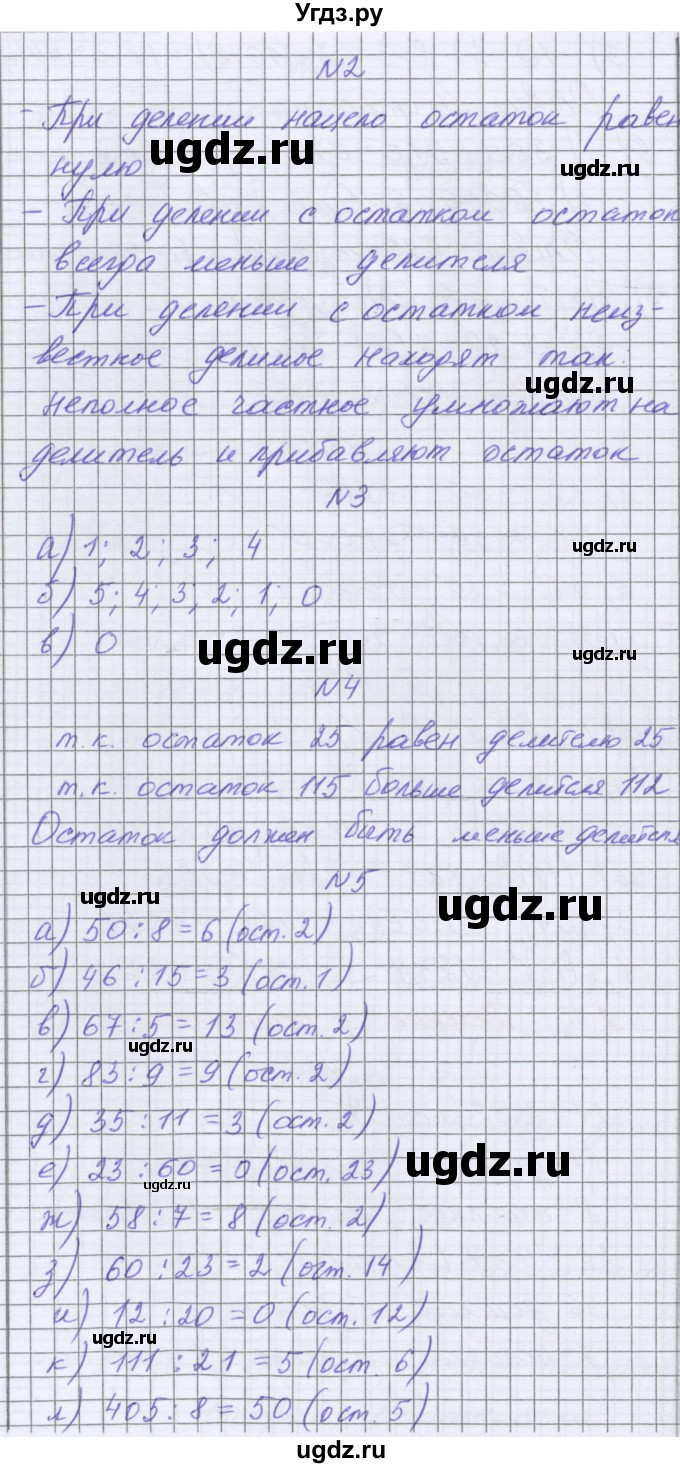 Угдз.ру
N2
- При делении нацело остаток равен
нулю
ugdz.ru
ugdz.ru
- При делении с остатком остаток
всегда меньше делителя
- При делении с остатком неиз-
вестное делимое находят так.
ugdz.ru
неполное частное умножают на
делитель и прибавляют остаток
N3
а) 1; 2; 3; 4
ugdz.ru
б) 5; 4; 3; 2; 1; 0
в) 0
ugdz.ru
ugdz.ru
N4
т.к. остаток 25 равен делителю 25
т.к. остаток 115 больше делителя 112
Остаток должен быть меньше делителя
N5
ugdz.ru
ugdz.ru
а) 50 : 8 = 6 (ост. 2)
б) 46 : 15 = 3 (ост. 1)
в) 67 : 5 = 13 (ост. 2)
ugdz.ru
г) 83 : 9 = 9 (ост. 2)
д) 35 : 11 = 3 (ост. 2)
е) 23 : 60 = 0 (ост. 23)
ugdz.ru
ugdz.ru
ж) 58 : 7 = 8 (ост. 2)
з) 60 : 23 = 2 (ост. 14)
и) 12 : 20 = 0 (ост. 12)
ugdz.ru
к) 111 : 21 = 5 (ост. 6)
л) 405 : 8 = 50 (ост. 5)
ugdz.ru